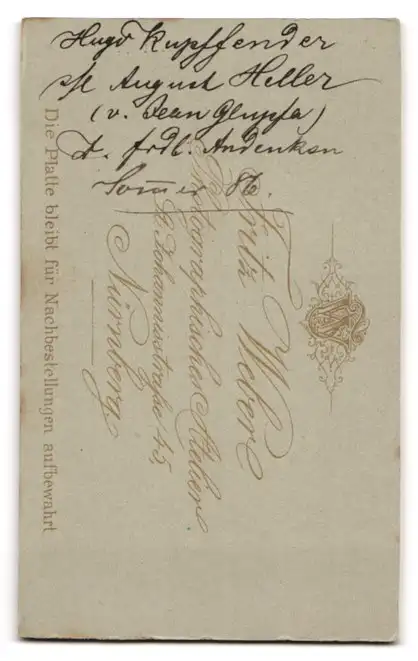 Hugo Kupffender
s/l August Heller
(v. Jean Glupfa)
z. frdl. Andenken
Sommer 86.
Fritz Weber
Photographisches Atelier.
St. Johannisstraße 45,
Nürnberg.
Die Platte bleibt für Nachbestellungen aufbewahrt